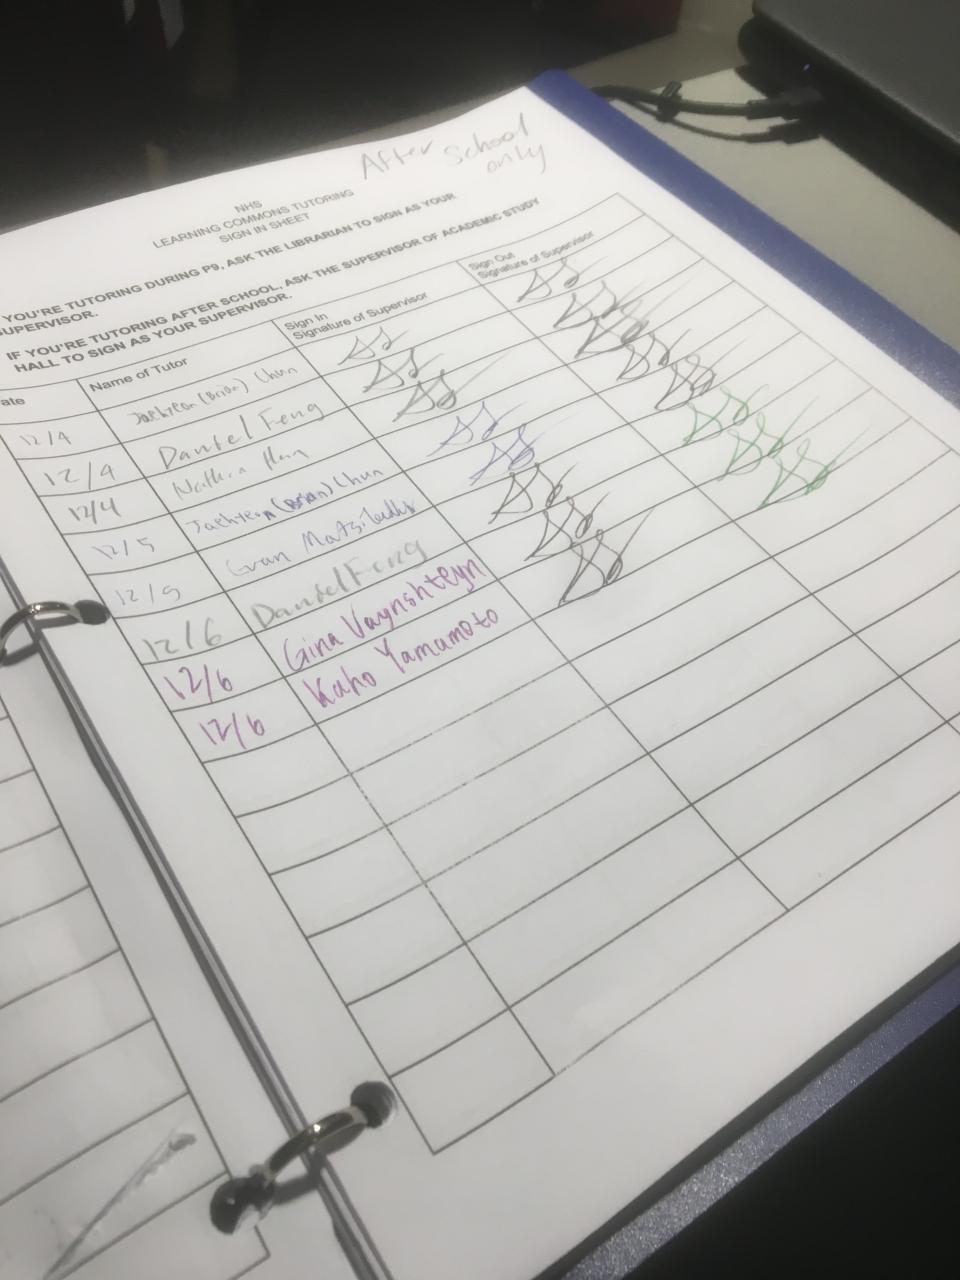 After School
only
NHS
LEARNING COMMONS TUTORING
SIGN IN SHEET
YOU'RE TUTORING DURING P9, ASK THE LIBRARIAN TO SIGN AS YOUR
SUPERVISOR.
IF YOU'RE TUTORING AFTER SCHOOL, ASK THE SUPERVISOR OF ACADEMIC STUDY
HALL TO SIGN AS YOUR SUPERVISOR.
ate Name of Tutor Sign In Signature of Supervisor Sign Out Signature of Supervisor
12/4 Jaehyeon (Brian) Chun
12/4 Daniel Feng
12/4 Nathan
12/5 Jaehyeon (Brian) Chun
12/5 Evan
12/6 Daniel Feng
12/6 Gina Vaynshteyn
12/6 Kaho Yamamoto